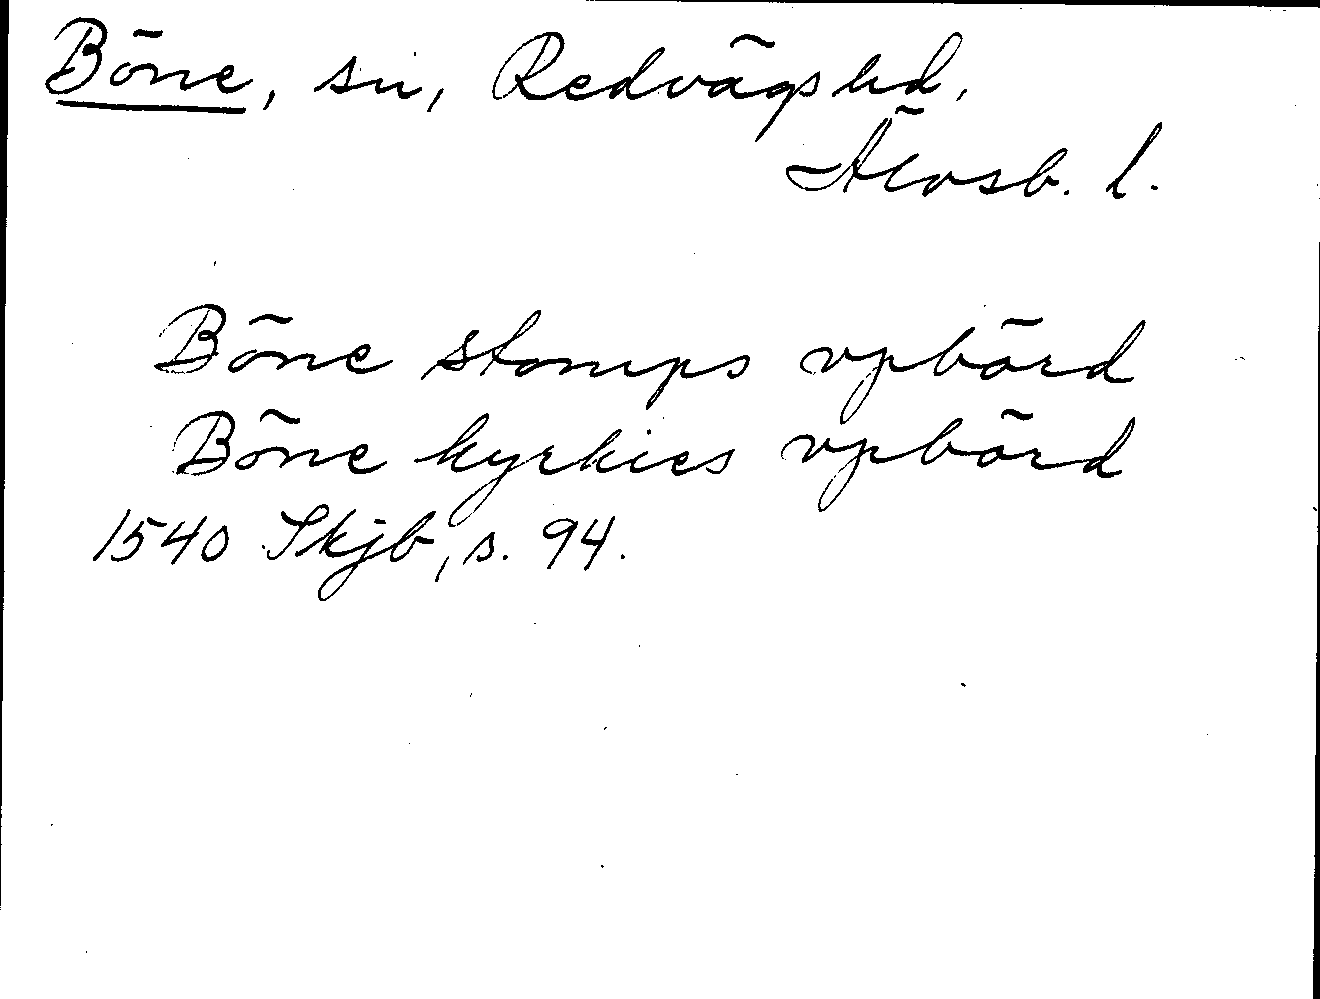 Böne, sn, Redvägs hd,
Älvsb. l.
Böne stomps vpbörd
Böne kyrkies vpbörd
1540 Skjb, s. 94.